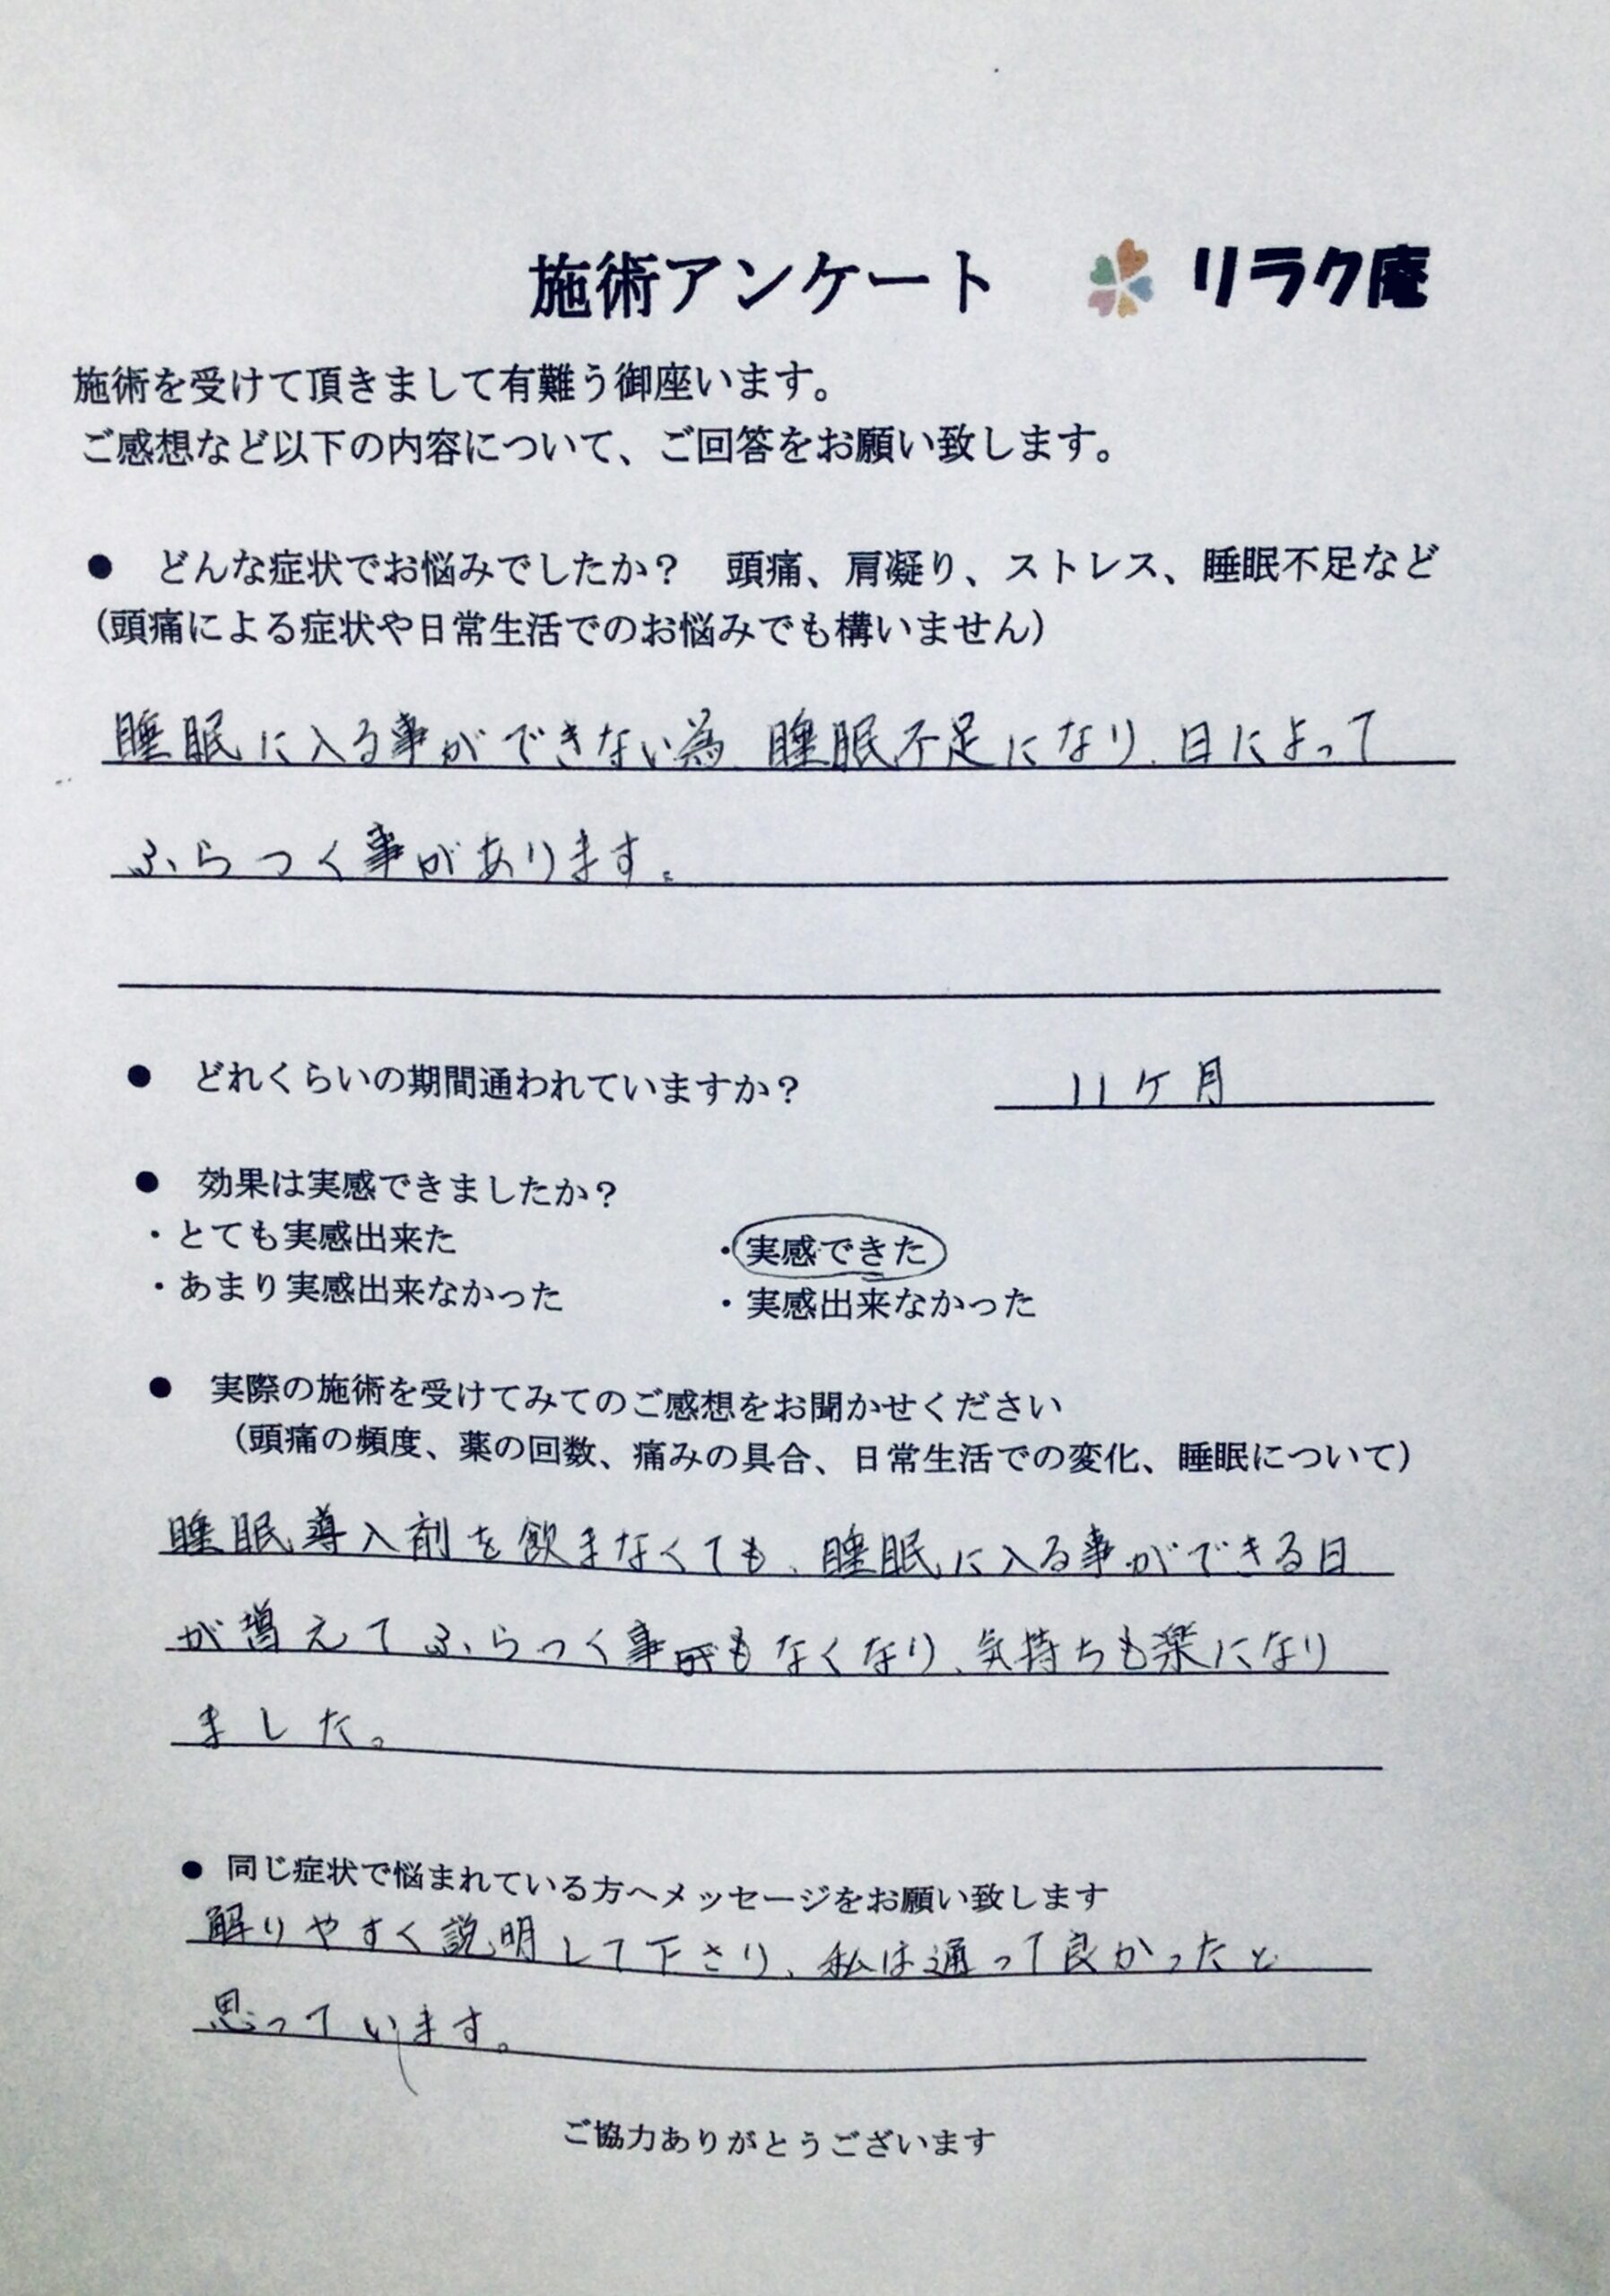 施術アンケート リラク庵
施術を受けて頂きまして有難う御座います。
ご感想など以下の内容について、ご回答をお願い致します。
● どんな症状でお悩みでしたか？ 頭痛、肩凝り、ストレス、睡眠不足など
（頭痛による症状や日常生活でのお悩みでも構いません）
睡眠に入る事ができない為、睡眠不足になり、日によって
ふらつく事があります。
● どれくらいの期間通われていますか？ 11ケ月
● 効果は実感できましたか？
・とても実感出来た ・実感できた
・あまり実感出来なかった ・実感出来なかった
● 実際の施術を受けてみてのご感想をお聞かせください
（頭痛の頻度、薬の回数、痛みの具合、日常生活での変化、睡眠について）
睡眠導入剤を飲まなくても、睡眠に入る事ができる日
が増えてふらつく事もなくなり、気持ちも楽になり
ました。
● 同じ症状で悩まれている方へメッセージをお願い致します
解りやすく説明して下さり、私は通って良かったと
思っています。
ご協力ありがとうございます